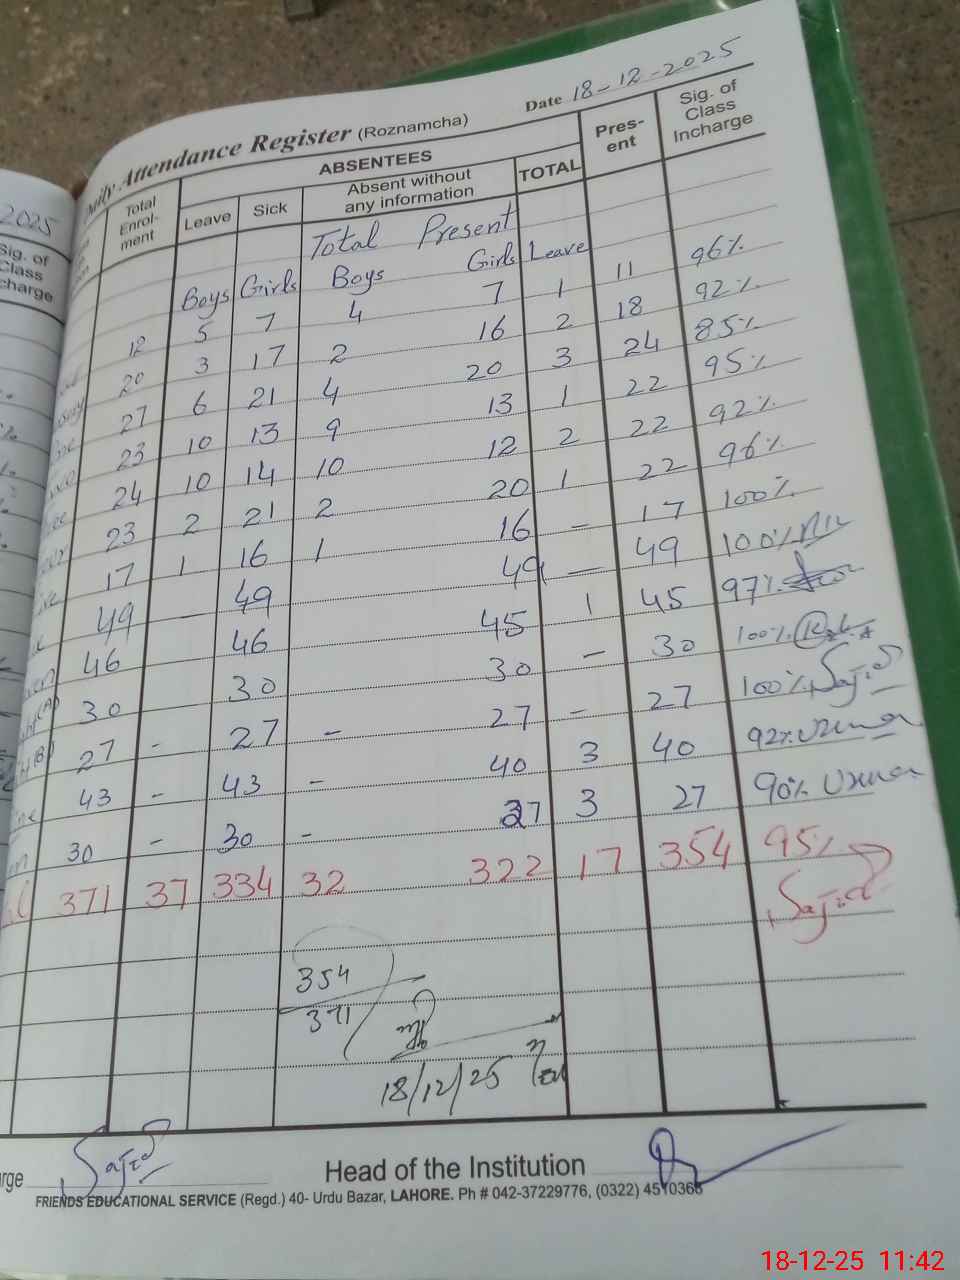 Date 18-12-2025
Daily Attendance Register (Roznamcha)
2025
Sig. of Class Incharge
Total Enrol-ment
ABSENTEES
Leave Sick Absent without any information TOTAL
Pres-ent
Sig. of Class Incharge
Total Present
Boys Girls Boys Girls Leave
12 5 7 4 7 1 11 96%
20 3 17 2 16 2 18 92%
27 6 21 4 20 3 24 85%
23 10 13 9 13 1 22 95%
24 10 14 10 12 2 22 92%
23 2 21 2 20 1 22 96%
17 1 16 1 16 - 17 100%
49 49 49 - 49 100%
46 46 45 1 45 97%
30 30 30 - 30 100%
27 - 27 - 27 - 27 100% Sajid
43 - 43 - 40 3 40 92% Usman
30 - 30 - 27 3 27 90% Usman
371 37 334 32 322 17 354 95%
Sajid
354
371
18/12/25
Sajid
Head of the Institution
FRIENDS EDUCATIONAL SERVICE (Regd.) 40- Urdu Bazar, LAHORE. Ph # 042-37229776, (0322) 4510368
18-12-25 11:42